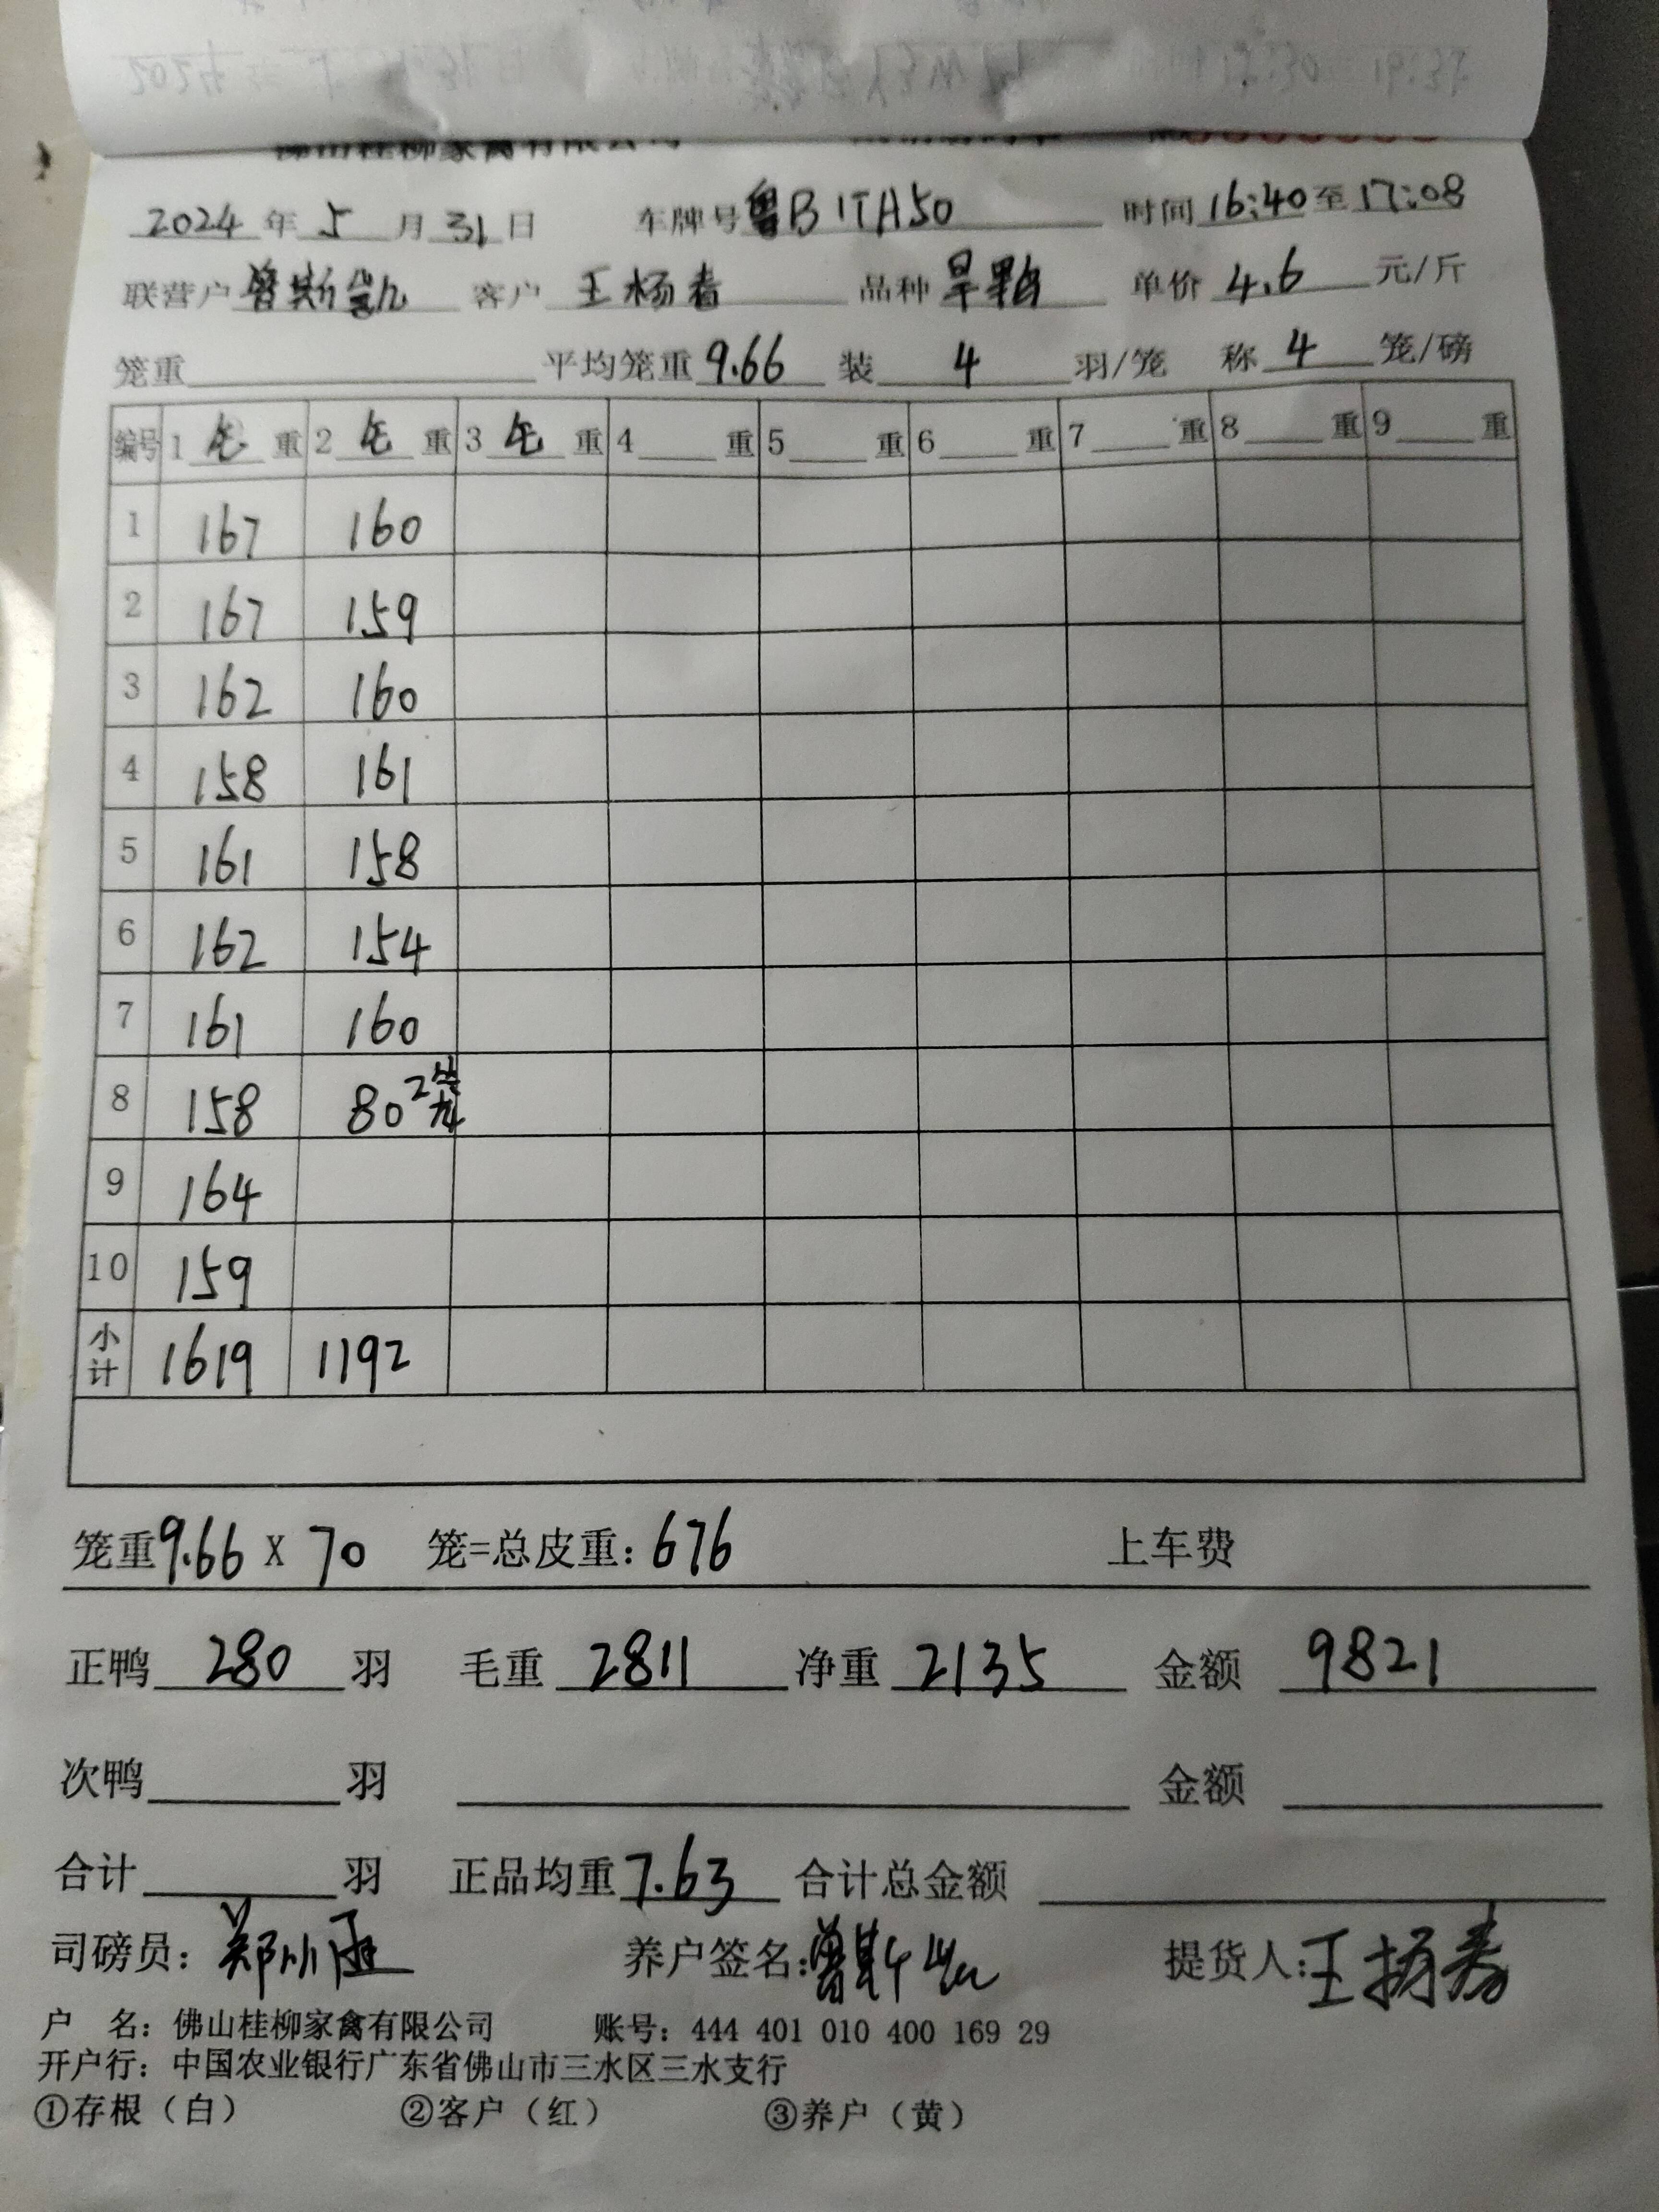 佛山桂柳家禽有限公司
2024年5月31日 车牌号粤B1TA50 时间16:40至17:08
联营户曾斯 客户王杨春 品种旱鸭 单价4.6元/斤
笼重 平均笼重9.66 装4羽/笼 称4笼/磅
编号 1毛重 2毛重 3毛重 4重 5重 6重 7重 8重 9重
1 167 160
2 167 159
3 162 160
4 158 161
5 161 158
6 162 154
7 161 160
8 158 80 2笼
9 164
10 159
小计 1619 1192
笼重9.66 X 70 笼=总皮重:676 上车费
正鸭280羽 毛重2811 净重2135 金额9821
次鸭 羽 金额
合计 羽 正品均重7.63 合计总金额
司磅员:郑 养户签名:曾斯 提货人:王扬春
户 名:佛山桂柳家禽有限公司 账号:444 401 010 400 169 29
开户行:中国农业银行广东省佛山市三水区三水支行
①存根(白) ②客户(红) ③养户(黄)